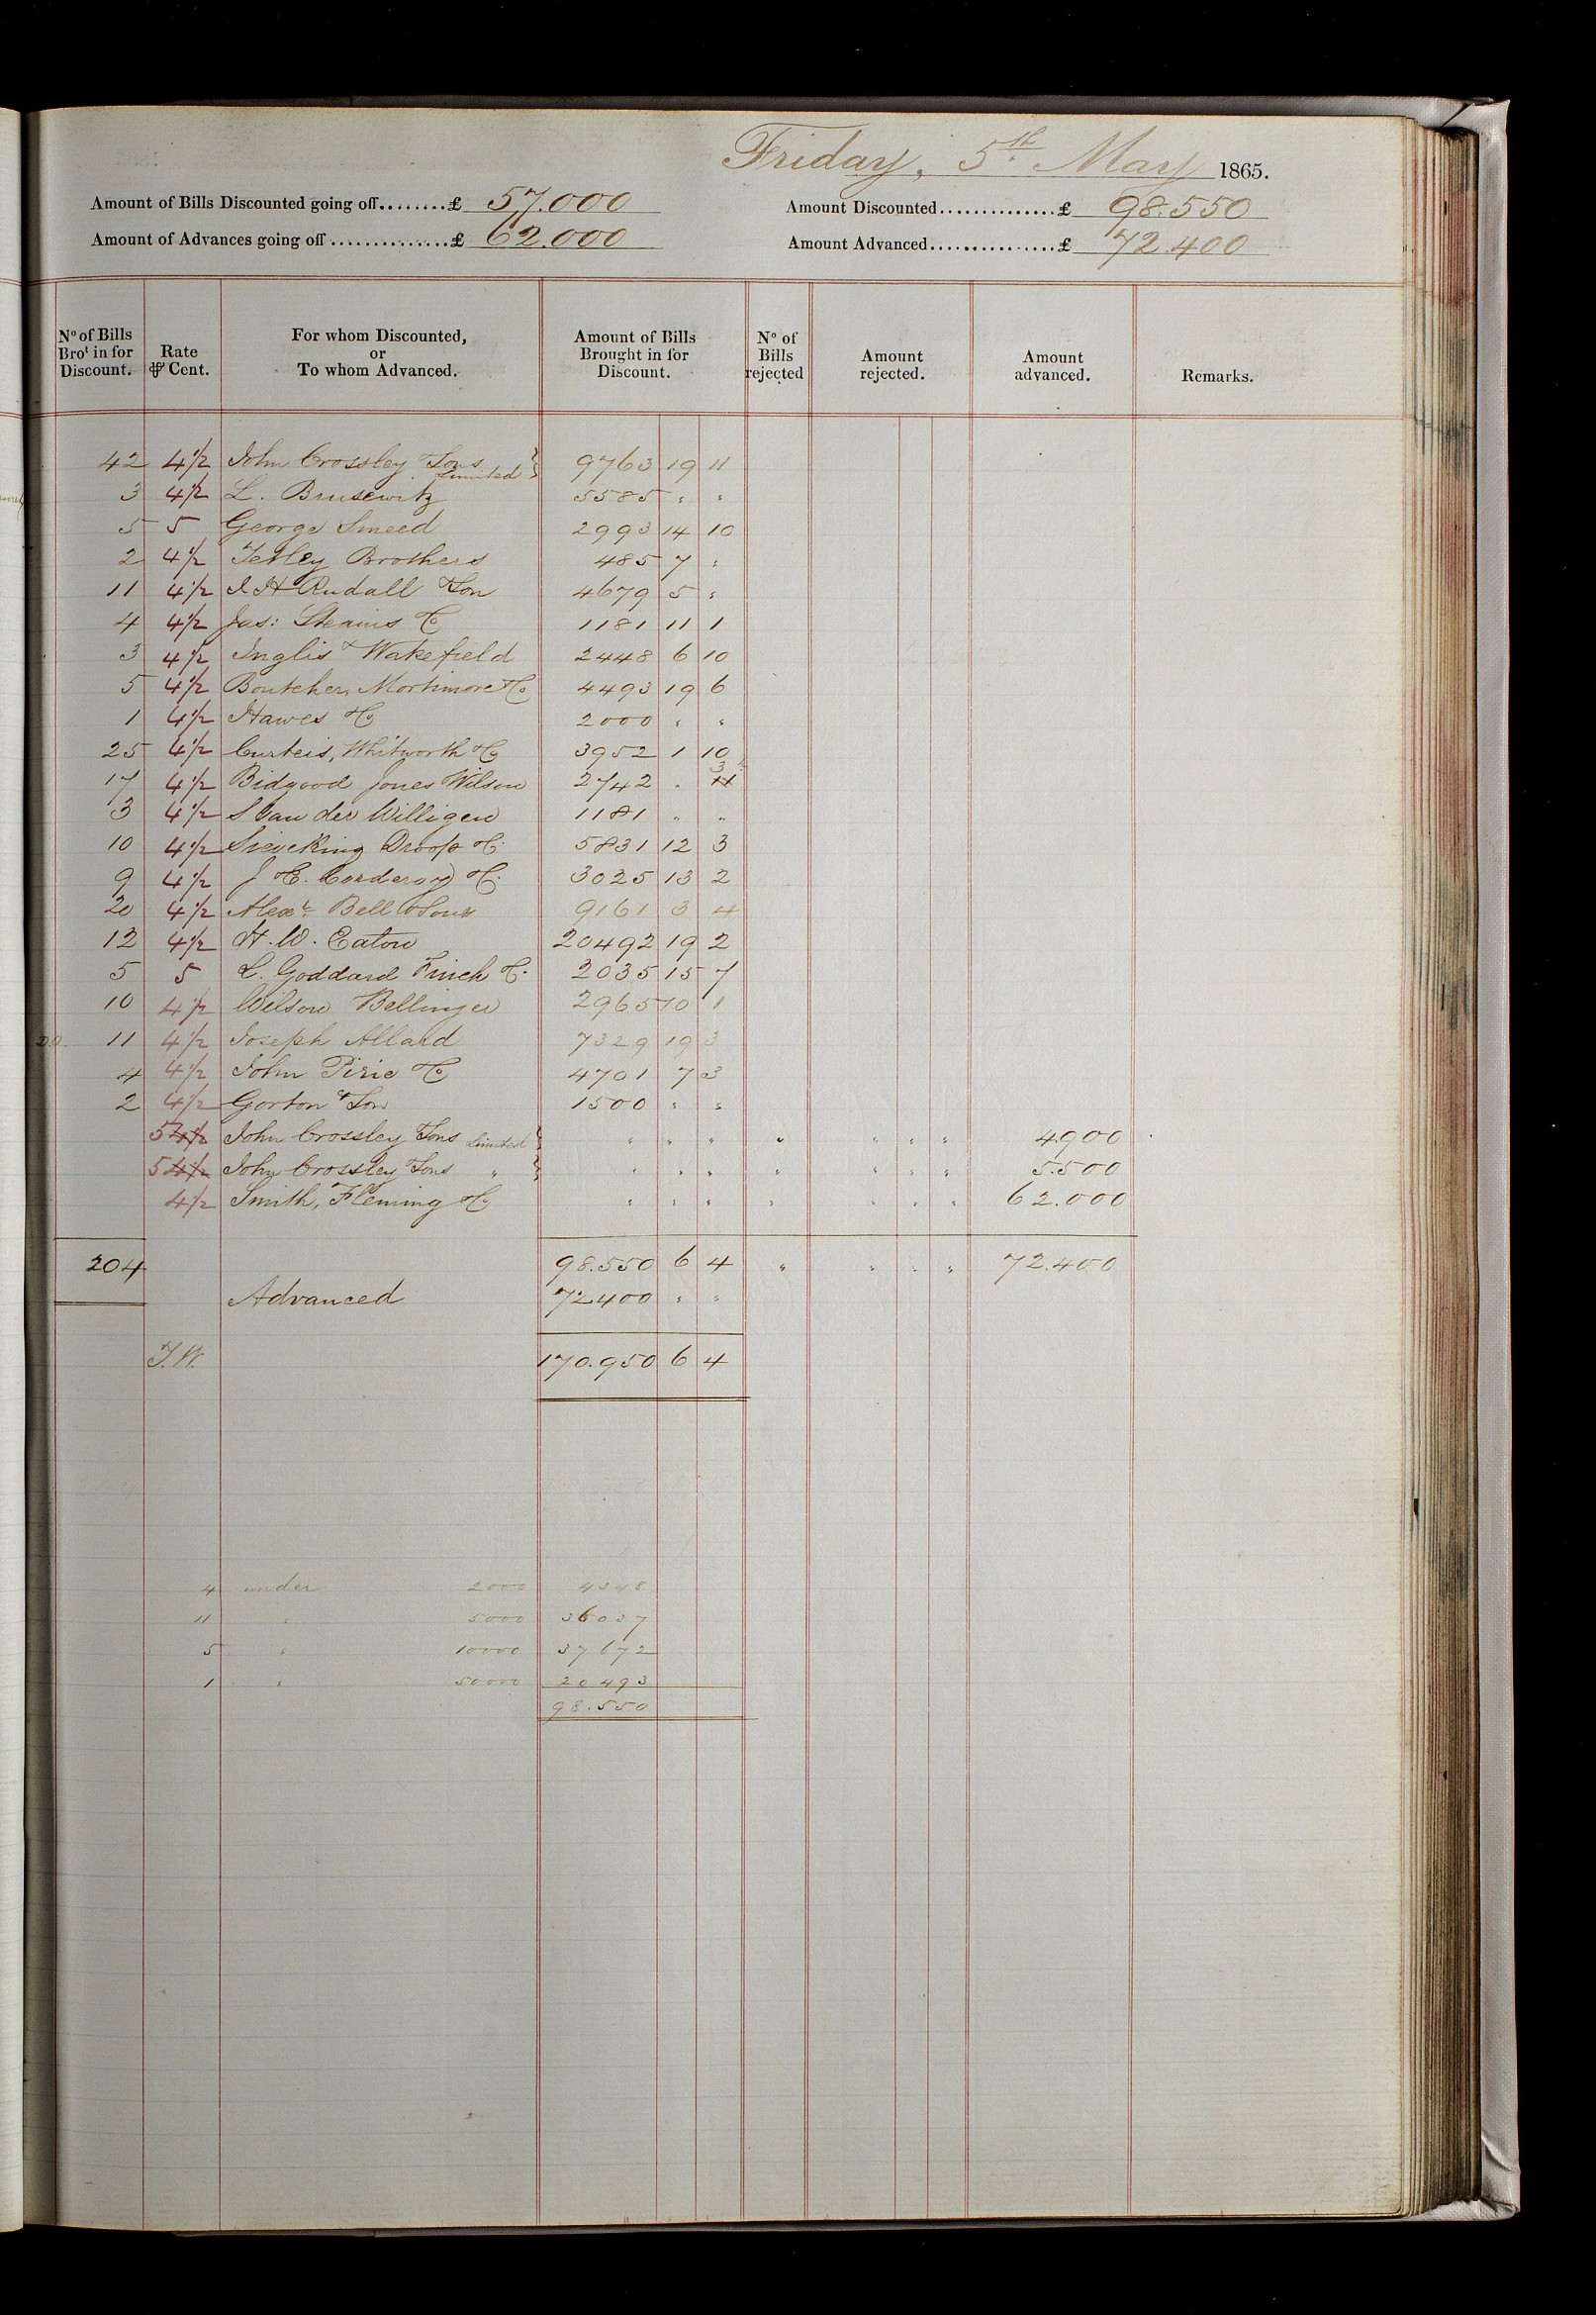 Friday, 5th May 1865.
Amount of Bills Discounted going off........£ 57.000 Amount Discounted..............£ 98.550
Amount of Advances going off...............£ 62.000 Amount Advanced................£ 72.400
No of Bills Brot in for Discount. Rate ⅌ Cent. For whom Discounted, or To whom Advanced. Amount of Bills Brought in for Discount. No of Bills rejected Amount rejected. Amount advanced. Remarks.
42 4½ John Crossley & Sons Limited 9763 19 11
3 4½ L. Brusewitz 5585 " "
5 5 George Smeed 2993 14 10
2 4½ Tetley Brothers 485 7 "
11 4½ I H Rudall & Son 4679 5 "
4 4½ Jas: Steains & Co 1181 11 1
3 4½ Inglis & Wakefield 2448 6 10
5 4½ Boutcher, Mortimore & Co 4493 19 6
1 4½ Hawes & Co 2000 " "
25 4½ Curteis, Whitworth & Co 3952 1 10
17 4½ Bidgood Jones Wilson 2742 . 3
3 4½ S Van der Willigen 1181 " "
10 4½ Sieveking Droop & Co 5831 12 3
9 4½ J & E. Corderoy & Co 3025 13 2
20 4½ Alexr Bell & Sons 9161 3 4
12 4½ H. W. Eaton 20492 19 2
5 5 L. Goddard Finch & Co 2035 15 7
10 4½ Wilson Bellinger 2965 10 1
11 4½ Joseph Allard 7329 19 3
4 4½ John Pirie & Co 4701 7 3
2 4½ Gorton & Son 1500 " "
5 4½ John Crossley & Sons Limited " " " " " " " 4.900
5 4½ John Crossley & Sons " " " " " " " " 5.500
4½ Smith, Fleming & Co " " " " " " " 62.000
204 98.550 6 4 " " " " 72.400
Advanced 72.400 " "
J.W. 170.950 6 4
4 under 2000 4348
11 " 5000 36037
5 " 10000 37672
1 " 50000 20493
98.550